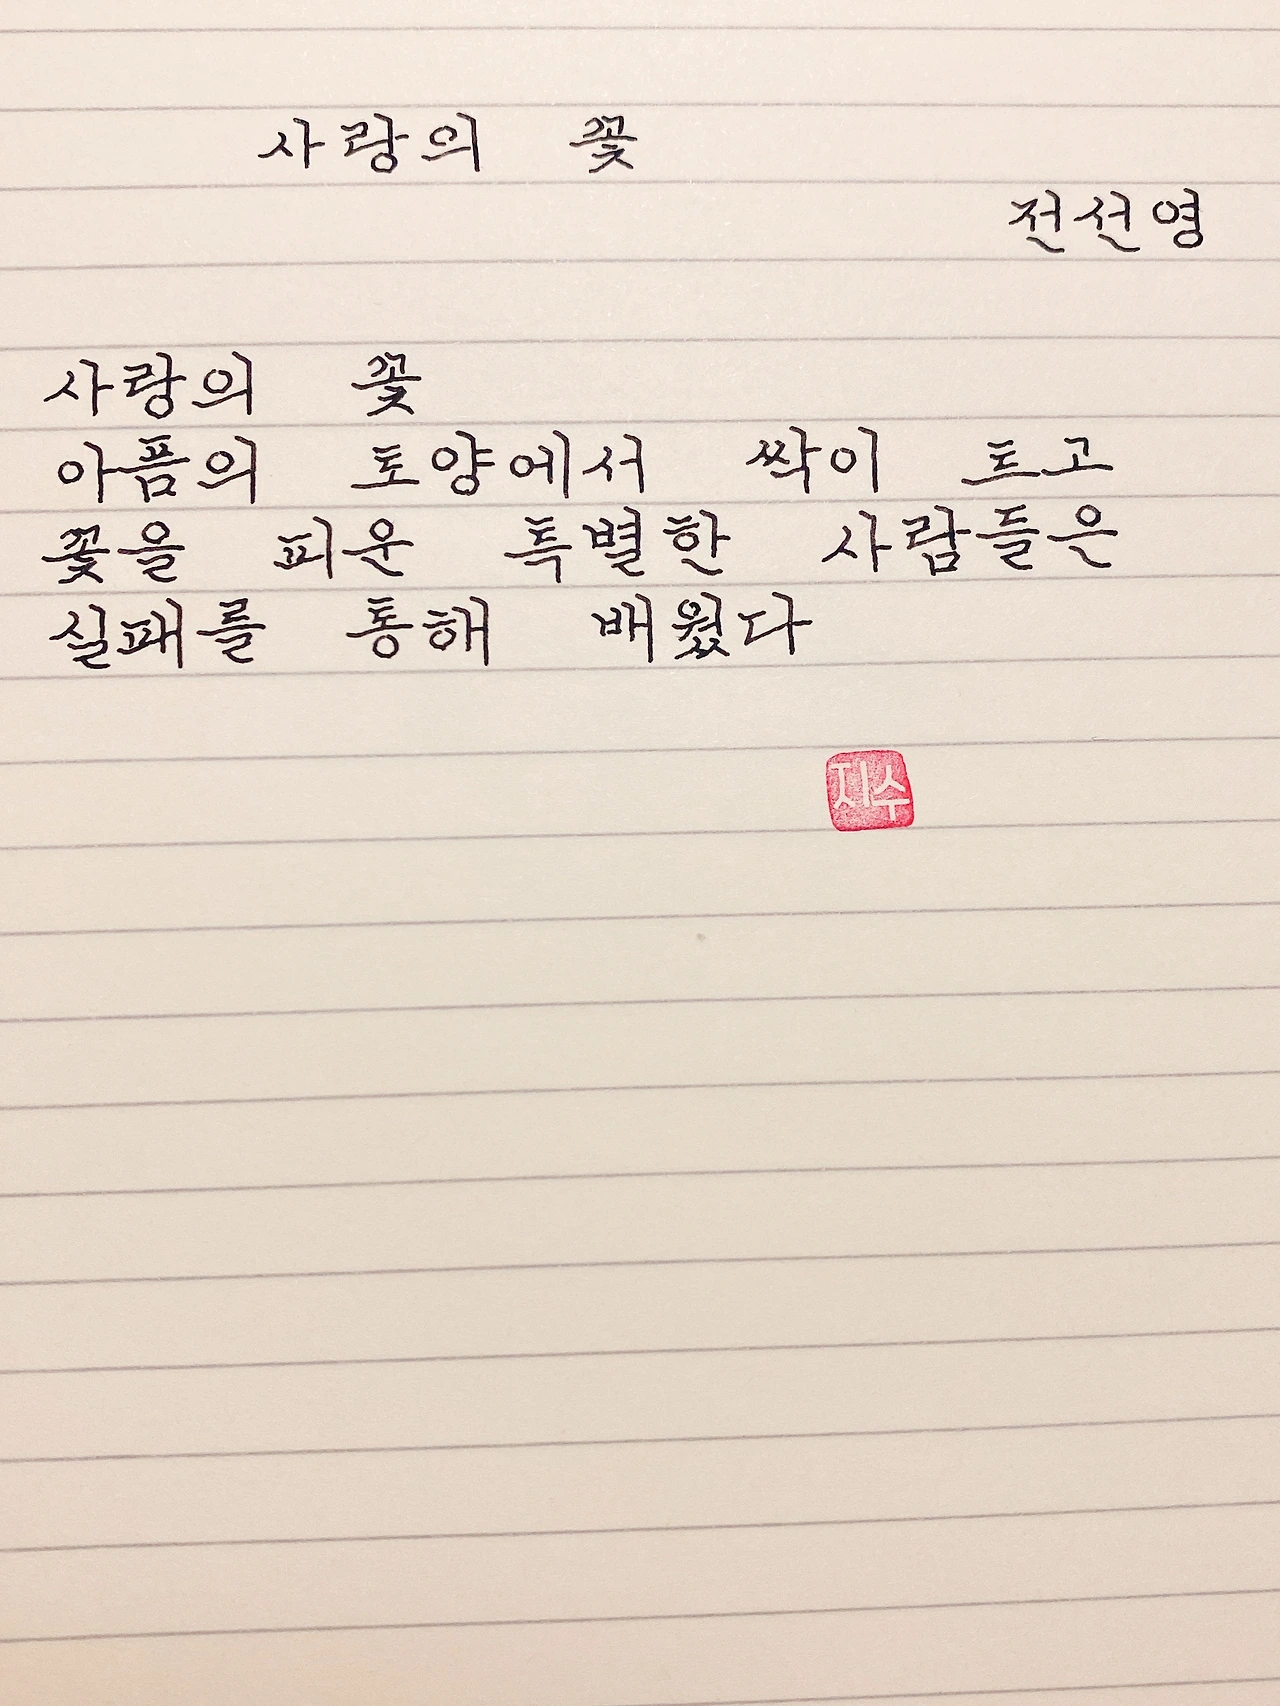 사랑의 꽃
전선영
사랑의 꽃
아픔의 토양에서 싹이 트고
꽃을 피운 특별한 사람들은
실패를 통해 배웠다
지수